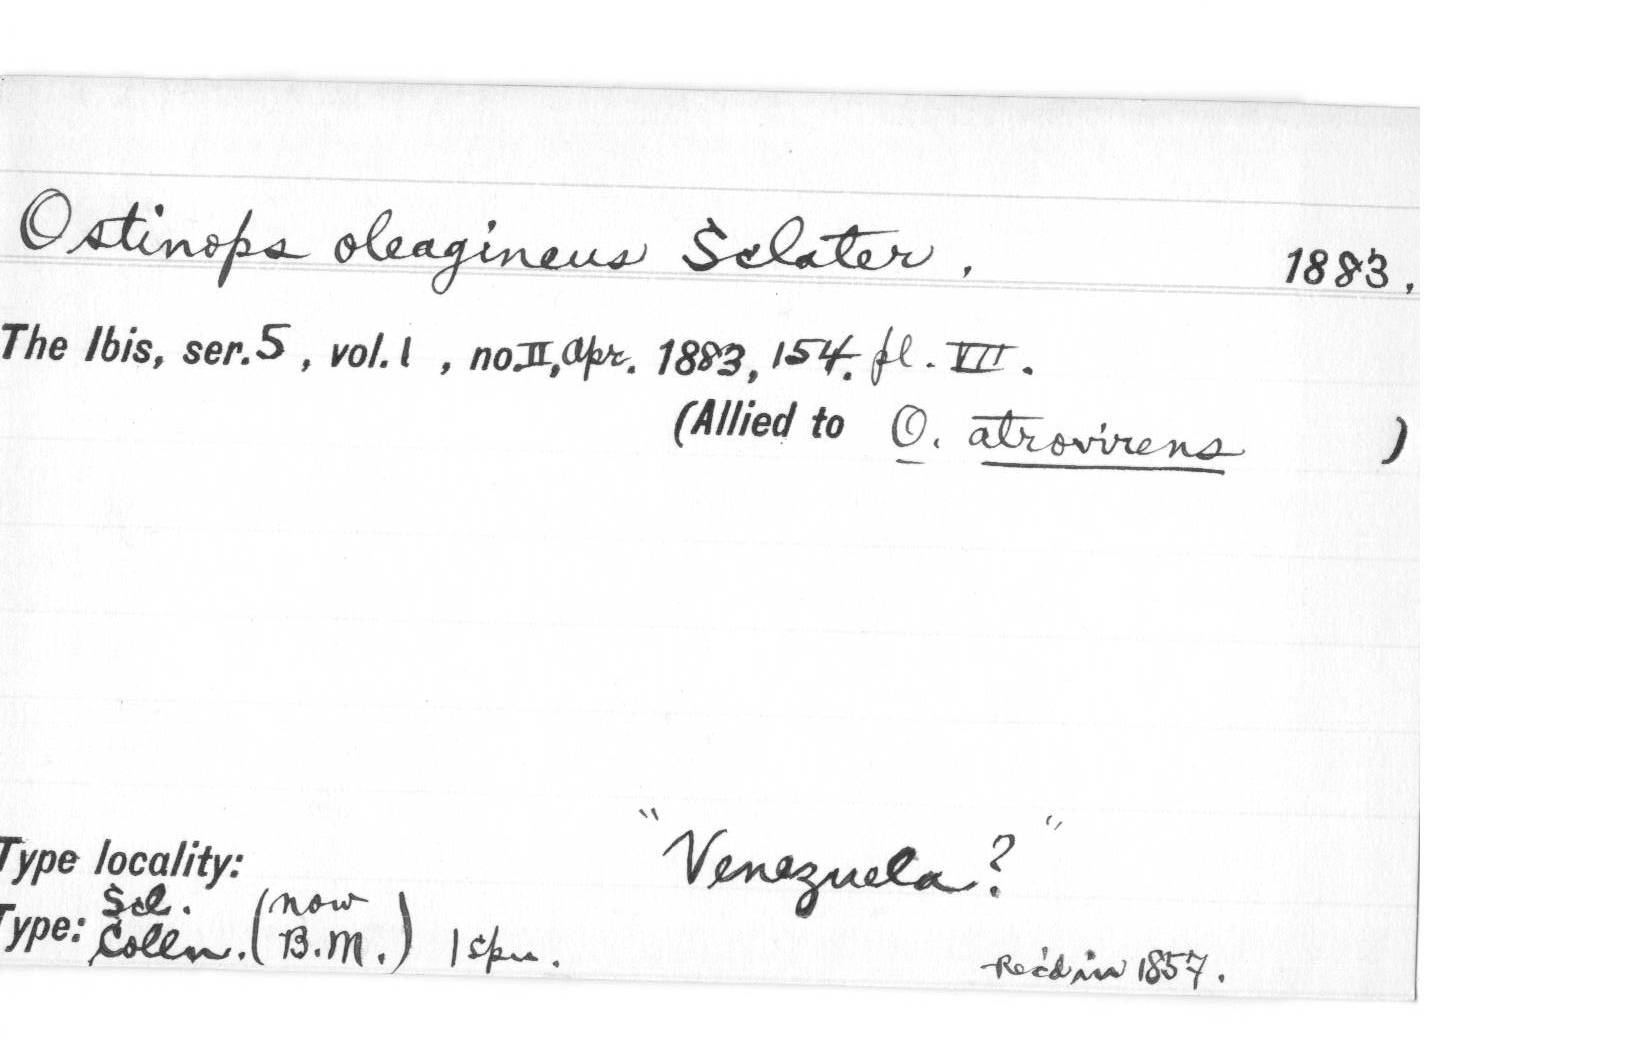 Ostinops oleagineus Sclater. 1883.
The Ibis, ser. 5, vol. 1, no. II, Apr. 1883, 154. pl. VII.
(Allied to O. atrovirens )
Type locality: "Venezuela?"
Type: Scl. Colln. (now B.M.) 1 spn. Rec'd in 1857.